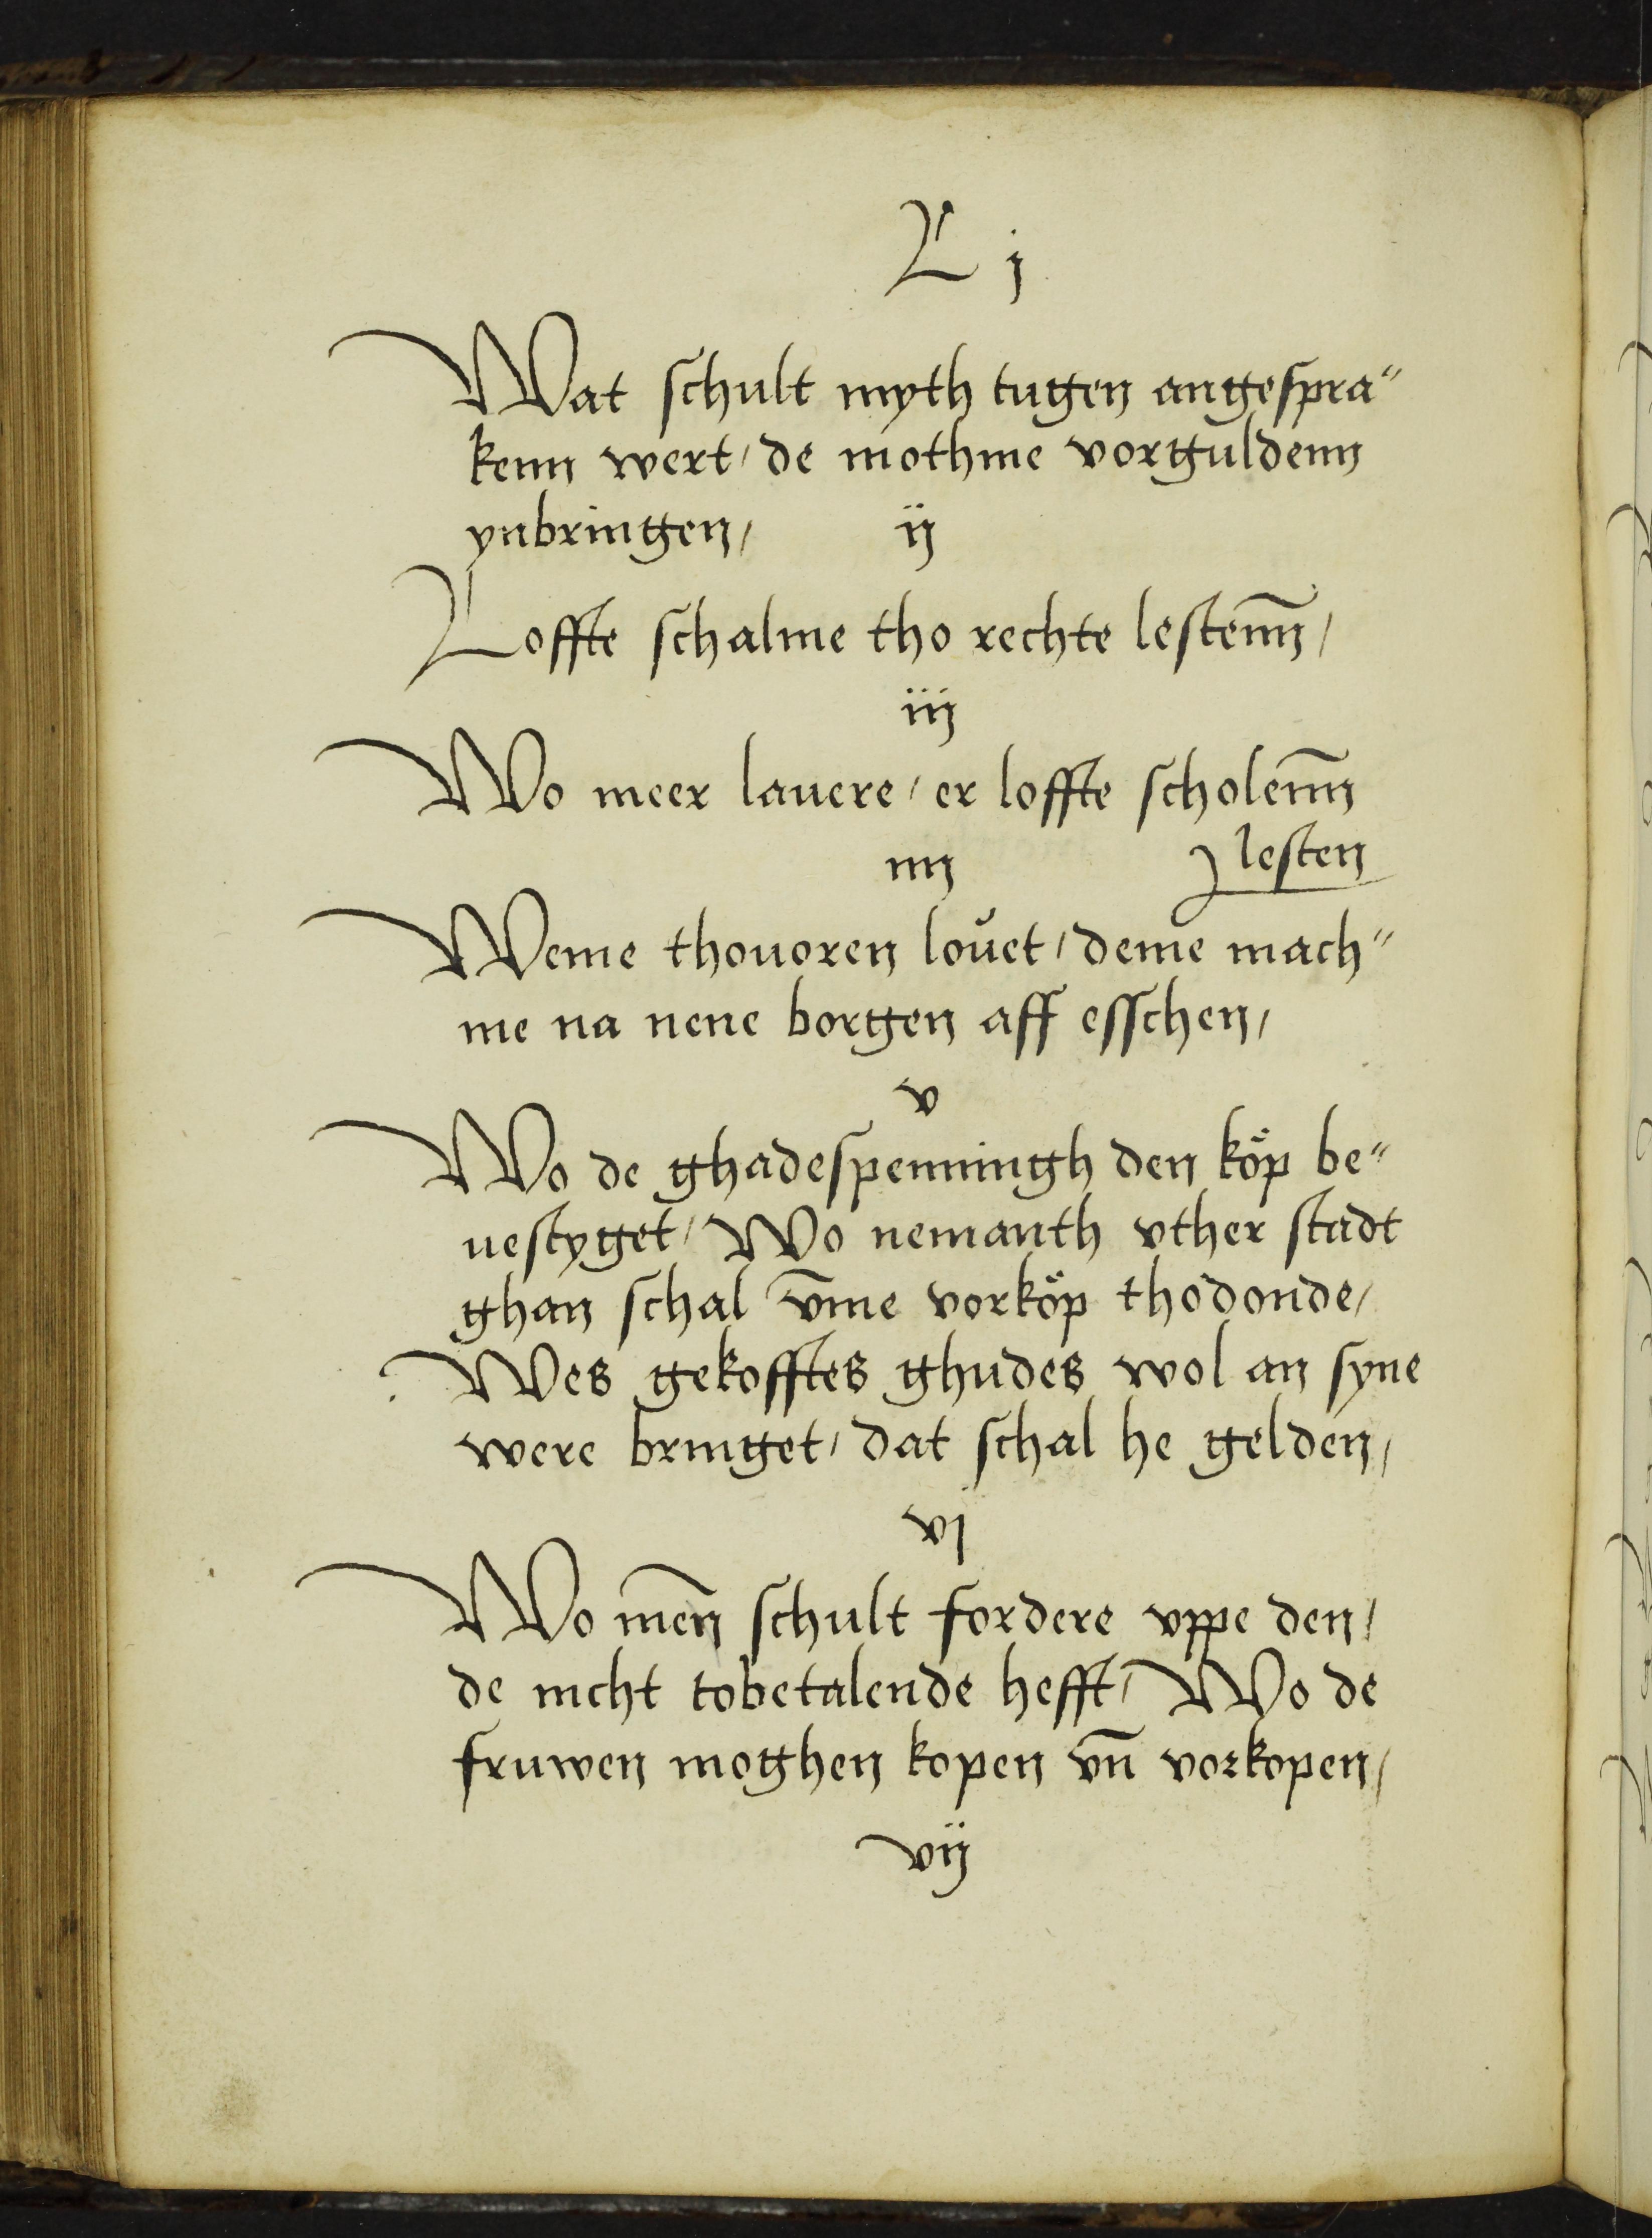 L j
Wat schult myth tugen angespra"
kenn wert / de mothme vorguldenn
ynbringen / ij
Loffte schalme tho rechte lestenn̄ /
iij
Wo meer lauere / er loffte scholenn̄
iiij lesten
Weme thouoren louet / deme mach"
me na nene borgen aff esschen /
v
Wo de ghadespenningh den köp be"
uestyget / Wo nemanth vther stadt
ghan schal v̄me vorköp thodonde /
Wes gekofftes ghudes wol an syne
were bringet / dat schal he gelden /
vj
Wo men̄ schult fordere vppe den /
de nicht tobetalende hefft / Wo de
fruwen moghen kopen vn̄ vorkopen /
vij